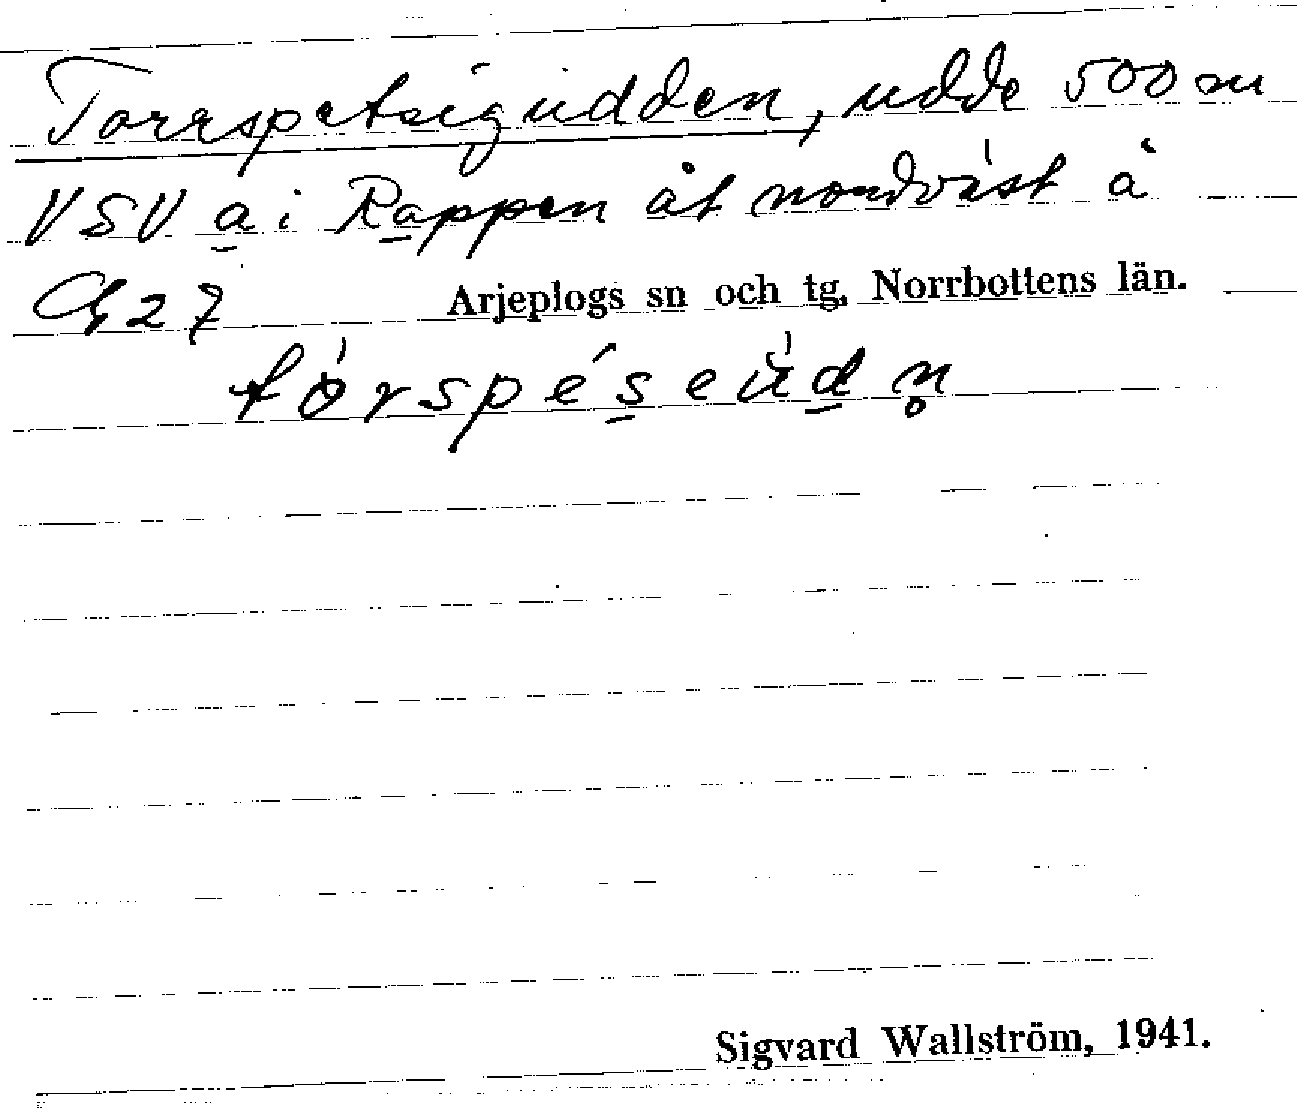 Torrspetsigudden, udde 500 m
VSV a i Rappen åt nordväst å
G 27 Arjeplogs sn och tg, Norrbottens län.
tórspéseúdn̥
Sigvard Wallström, 1941.